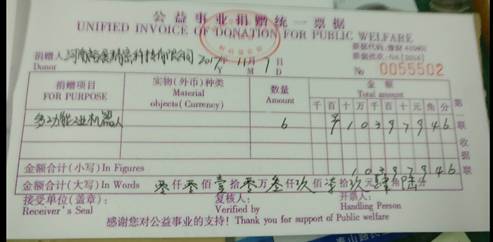 公益事业捐赠统一票据
UNIFIED INVOICE OF DONATION FOR PUBLIC WELFARE
捐赠人 河南 科技有限公司 2017年 11月 9日 票据代码:
Donor Y M D
№ 0055502
捐赠项目 实物(外币)种类 数量 金额
FOR PURPOSE Material objects (Currency) Amount Total amount
千 百 十 万 千 百 十 元 角 分
多功能 机器人 6 1 0 3 9 7 9 4 6
金额合计(小写) In Figures 1 0 3 9 7 9 4 6
金额合计(大写) In Words 零仟零佰壹拾零万叁仟玖佰柒拾玖元肆角陆分
接受单位(盖章): 复核人: 开票人:
Receiver's Seal Verified by Handling Person
感谢您对公益事业的支持! Thank you for support of Public welfare
第一联 收据联